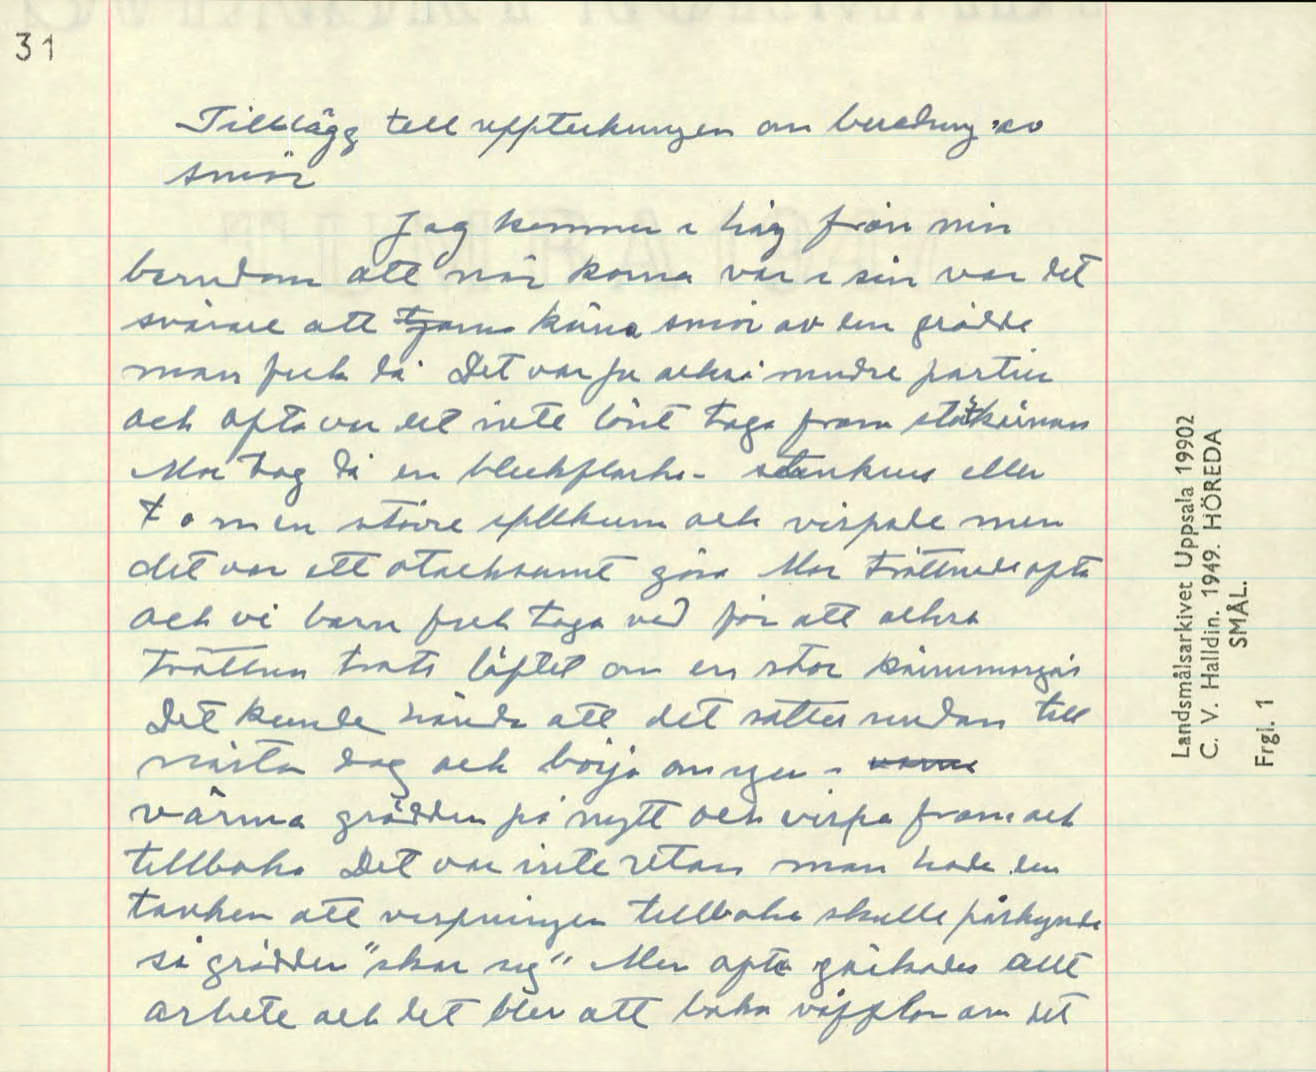 31
Tillägg till uppteckningen om beredning av
smör
Jag kommer i håg från min
barndom att när korna var i sin var det
svårare att kärna smör av den grädde
man fick då Det var ju också mindre partier
och ofta var det inte lönt taga fram stötkärnan
Mor tog då en bleckflaska - stenkrus eller
tom en större spillkum och vispade men
det var ett otacksamt göra Mor tröttnade ofta
och vi barn fick taga vid för att också
tröttna trots löftet om en stor kärnsmörgås
Det kunde hända att det sattes undan till
nästa dag och börja om igen -
värma grädden på nytt och vispa fram och
tillbaka Det var inte utan man hade den
tanken att vispningen tillbaka skulle påskynda
så grädden "skar sig" Men ofta gäckades allt
arbete och det blev att baka våfflor av det
Landsmålsarkivet Uppsala 19902
C. V. Halldin. 1949. HÖREDA
SMÅL.
Frgl. 1